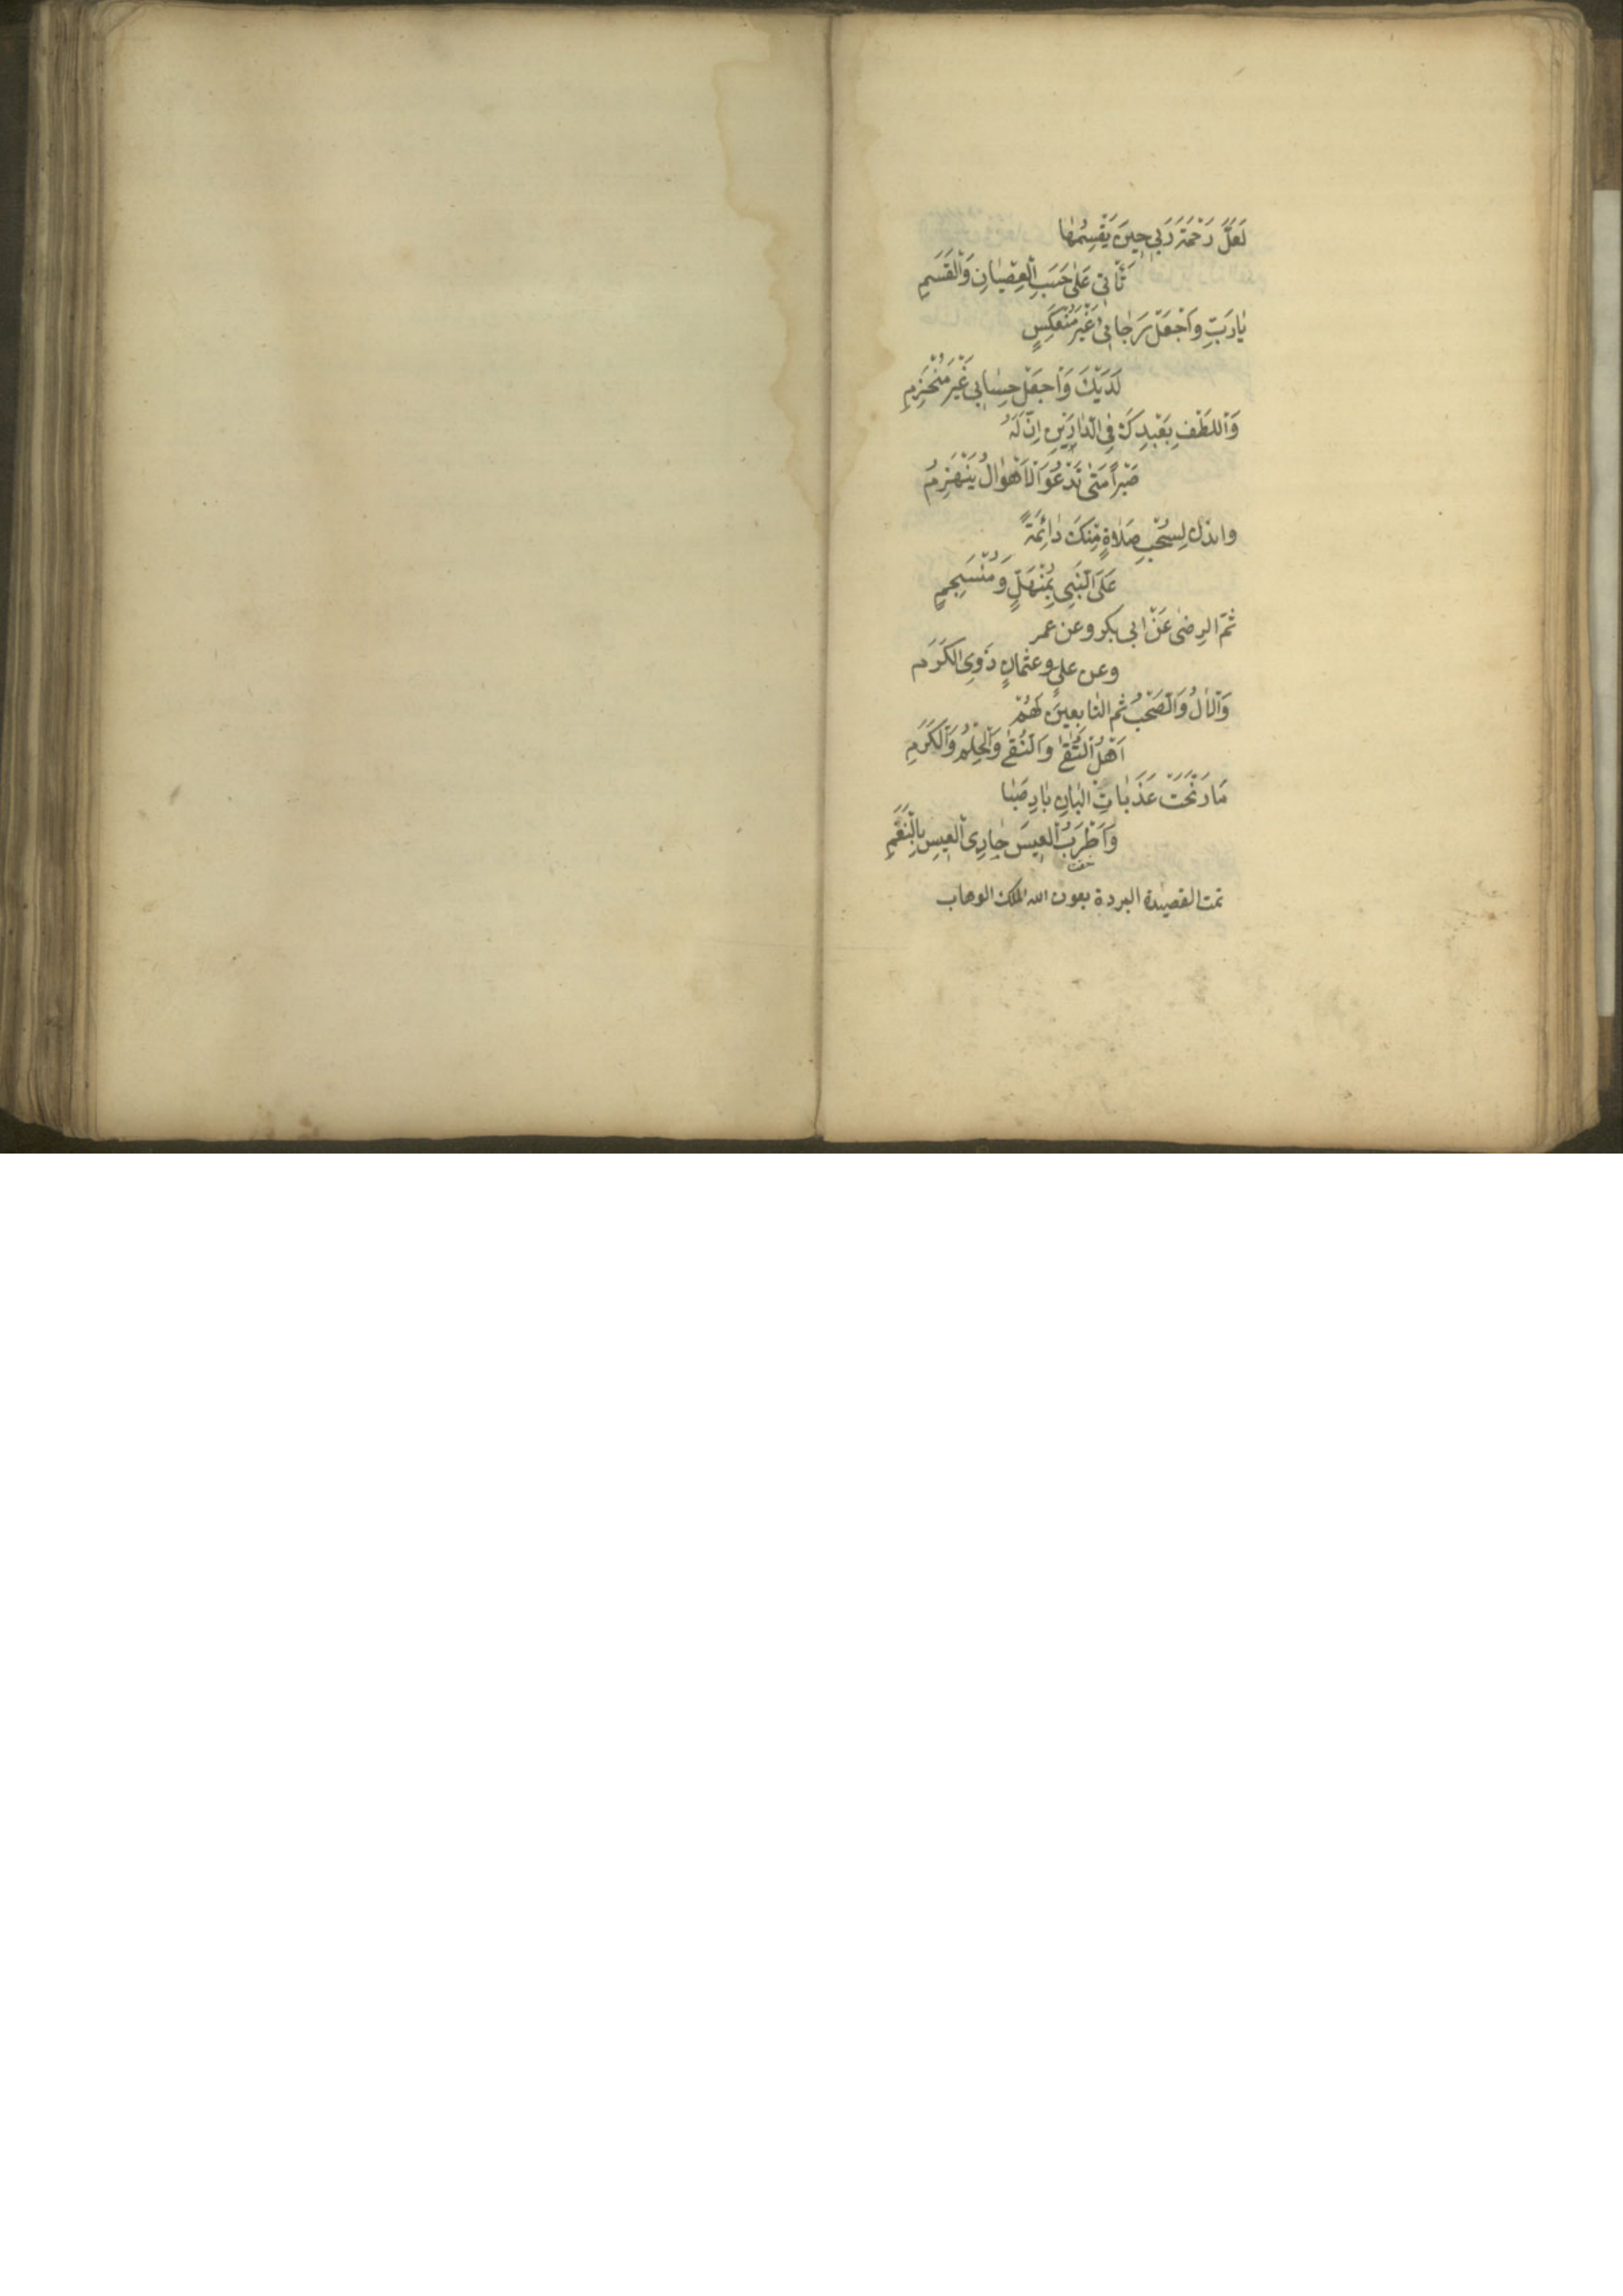 لَعَلَّ رَحْمَةَ رَبِّي حِينَ يَقْسِمُهَا
تَأتي عَلَى حَسَبِ الْعِصْيَانِ وَالْقَسَمِ
يَارَبِّ وَاجْعَلْ رَجَائي غَيْرَ مُنْعَكِسٍ
لَدَيْكَ وَاجعَلْ حِسَابي غَيْرَ مُنْخَزِمِ
وَالْطُفْ بِعَبْدِكَ فِي الدَّارَيْنِ اِنَّ لَهُ
صَبْرًا مَتى تَدْعُوَ الْاَهْوَالُ يَنْهَزِمُ
وائذن لِسُحْبِ صَلَاةٍ مِنْكَ دَائِمَةً
عَلَى النَّبِي بِمُنْهَلٍّ وَمُنْسَجِمٍ
ثمّ الرِضى عَنْ ابي بكر وعن عمر
وعن عليٍ وعثمانٍ ذَوِى الكَرَم
وَالْاٰلُ وَالصَّحْبُ ثم التابعينَ لَهُمْ
اَهْلُ التُّقَى وَالنُّقَى وَالْحِلْمُ وَالْكَرَمِ
مَا رَنَّحَتْ عَذَبَاتِ الْبَانِ بَادِ صَبَا
وَاَطْرَبُ الْعِيسَ حَادِى الْعِيسِ بِالنَّغَمِ
تمت القصيدة البردة بعون الله الملك الوهاب